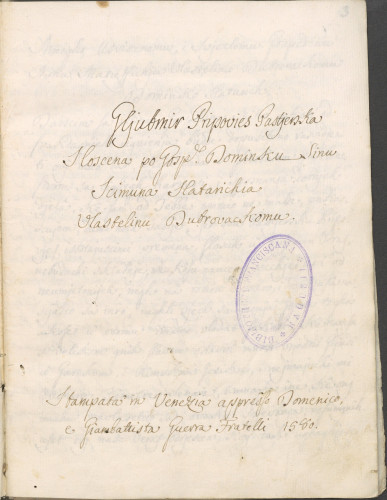 3
Gljubmir Pripovies Pastjerska
Sloscena po Gosp. Dominsku Sinu
Scimuna Slatarichia
Vlastelinu Dubrovackomu.
Stampata in Venezia appresso Domenico,
e Giambattista Guerra Fratelli 1580.